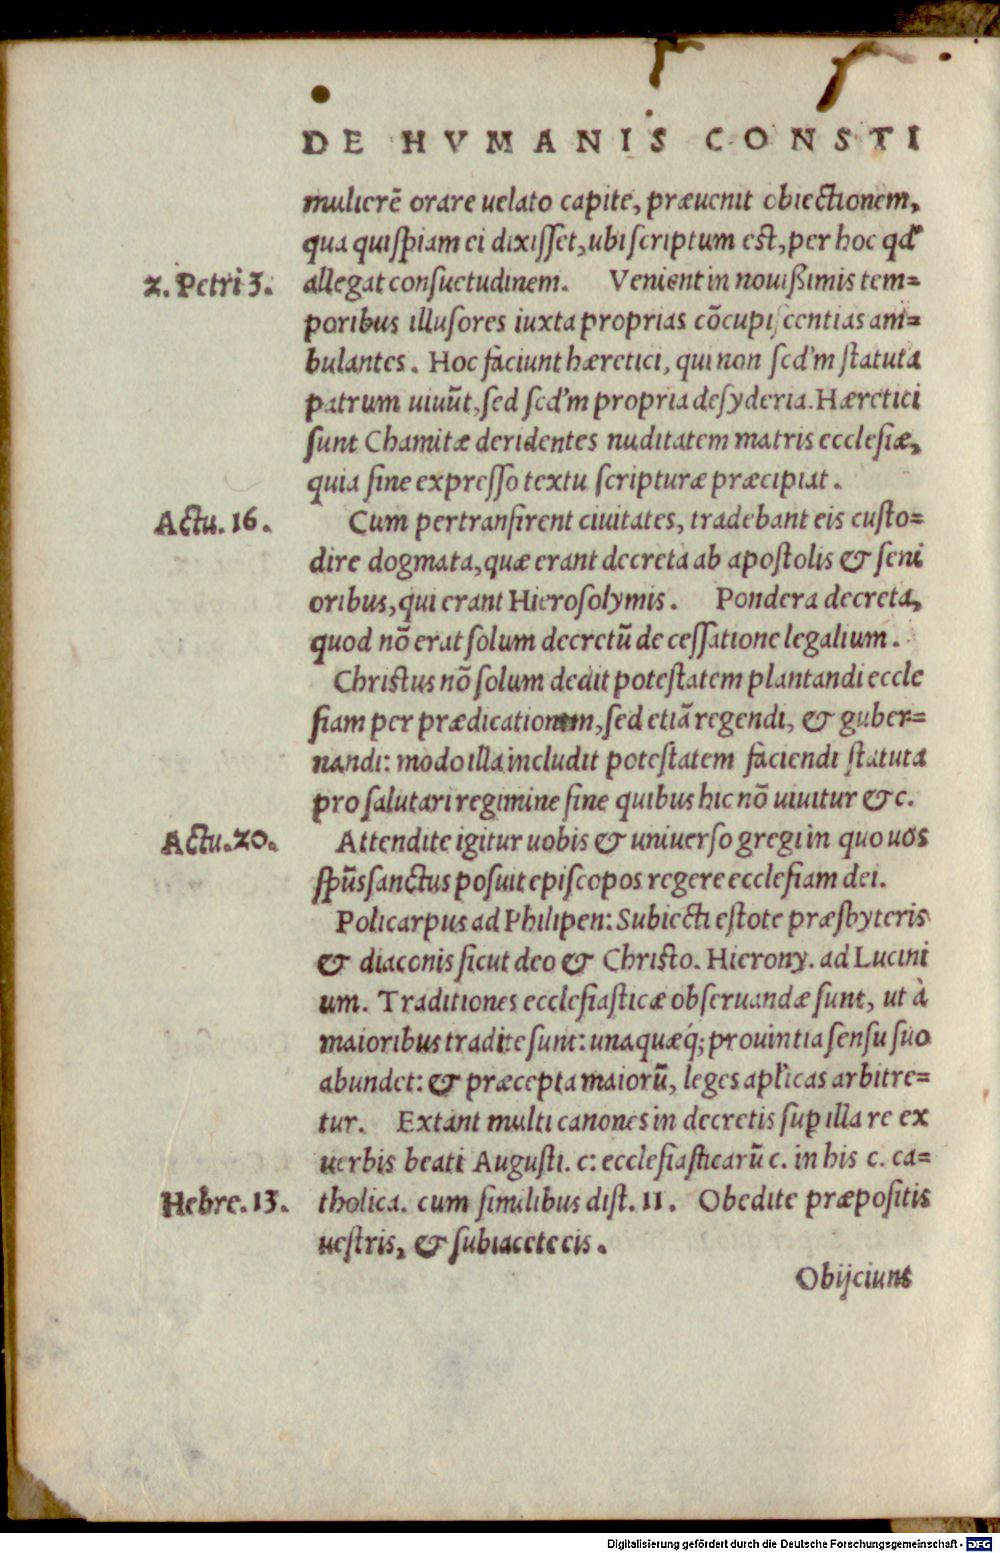 DE HVMANIS CONSTI
mulierē orare uelato capite, præuenit obiectionem,
qua quispiam ei dixisset, ubi scriptum est, per hoc qđ
2. Petri 3. allegat consuetudinem. Venient in nouißimis tem=
poribus illusores iuxta proprias cōcupiscentias am=
bulantes. Hoc faciunt hæretici, qui non scd'm statuta
patrum uiuūt, sed scd'm propria desyderia. Hæretici
sunt Chamitæ deridentes nuditatem matris ecclesiæ,
quia sine expresso textu scripturæ præcipiat.
Actu. 16. Cum pertransirent ciuitates, tradebant eis custo=
dire dogmata, quæ erant decreta ab apostolis & seni
oribus, qui erant Hierosolymis. Pondera decreta,
quod nō erat solum decretū de cessatione legalium.
Christus nō solum dedit potestatem plantandi eccle
siam per prædicationem, sed etiā regendi, & guber=
nandi: modo illa includit potestatem faciendi statuta
pro salutari regimine sine quibus hic nō uiuitur &c.
Actu. 20. Attendite igitur uobis & uniuerso gregi in quo uos
spūs sanctus posuit episcopos regere ecclesiam dei.
Policarpus ad Philipen: Subiecti estote præsbyteris
& diaconis sicut deo & Christo. Hierony. ad Lucini
um. Traditiones ecclesiasticæ obseruandæ sunt, ut à
maioribus tradite sunt: unaquæq́; prouintia sensu suo
abundet: & præcepta maiorū, leges aplicas arbitre=
tur. Extant multi canones in decretis suꝑ illa re ex
uerbis beati Augusti. c: ecclesiasticarū c. in his c. ca=
Hebre. 13. tholica. cum similibus dist. 11. Obedite præpositis
uestris, & subiacete eis.
Obijciunt
Digitalisierung gefördert durch die Deutsche Forschungsgemeinschaft - DFG